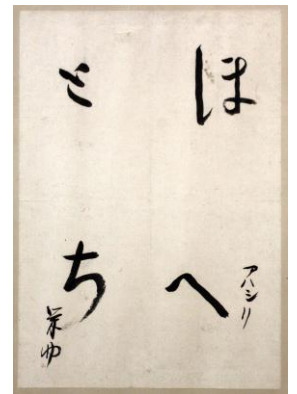 ほへ
アハシリ
とち